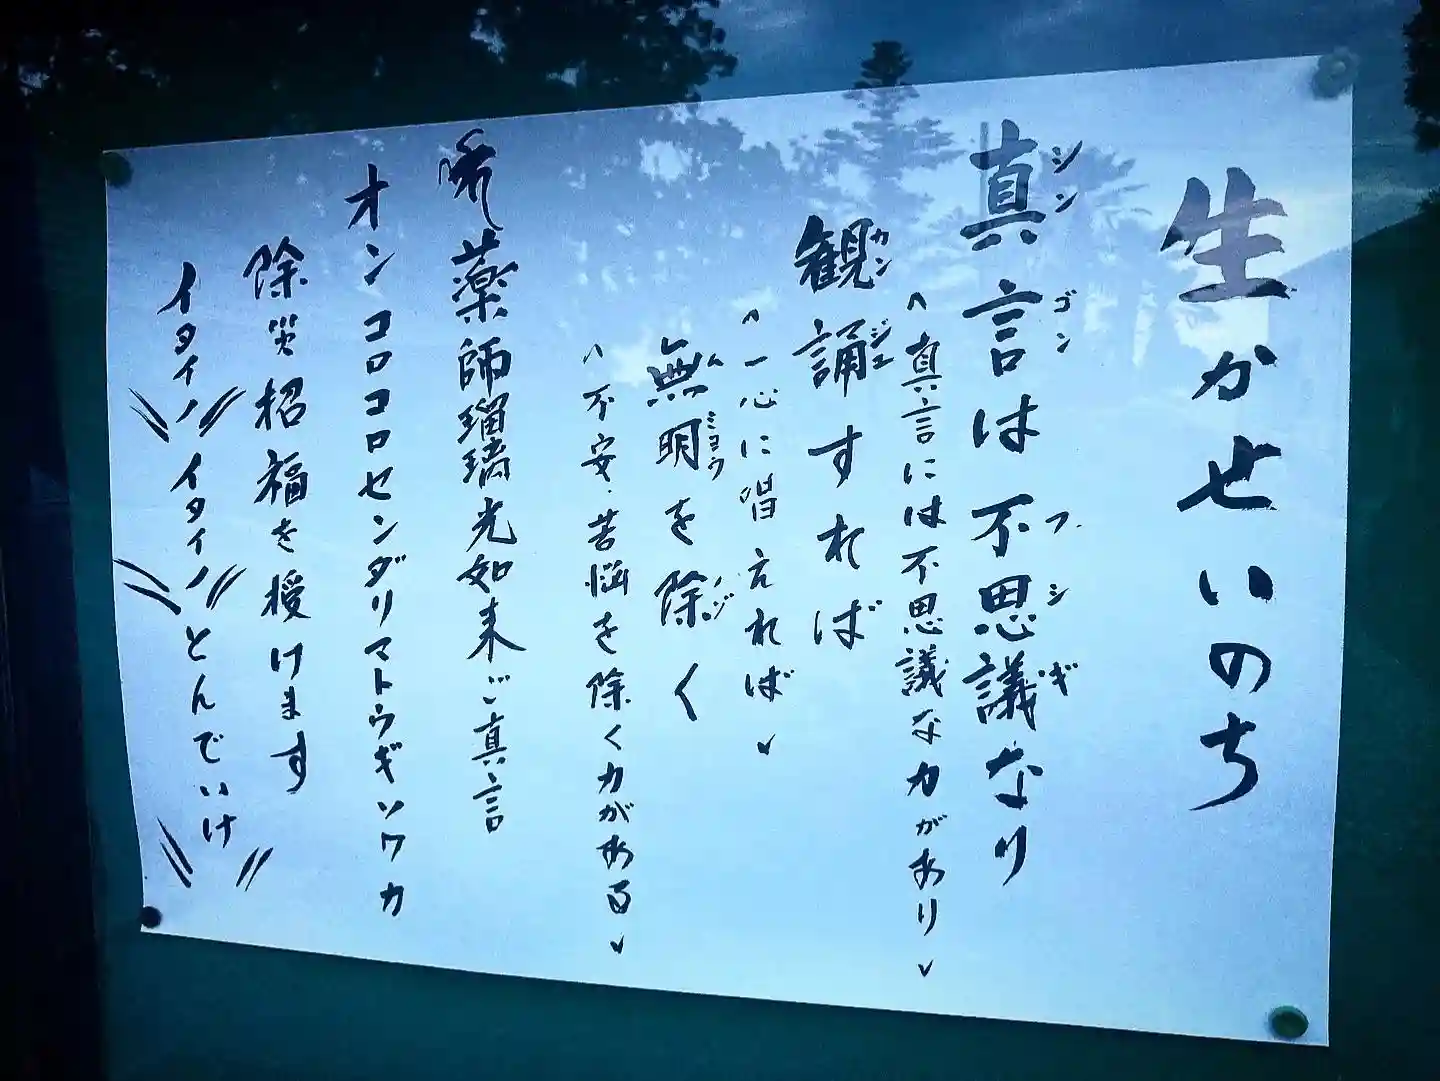 生かせいのち
真言は不思議なり
シンゴン フシギ
〈真言には不思議な力があり〉
観誦すれば
カンジュ
〈一心に唱えれば〉
無明を除く
ムミョウ ノゾ
〈不安・苦悩を除く力がある〉
薬師瑠璃光如来ご真言
オンコロコロセンダリマトウギソワカ
除災招福を授けます
イタイノイタイノとんでいけ